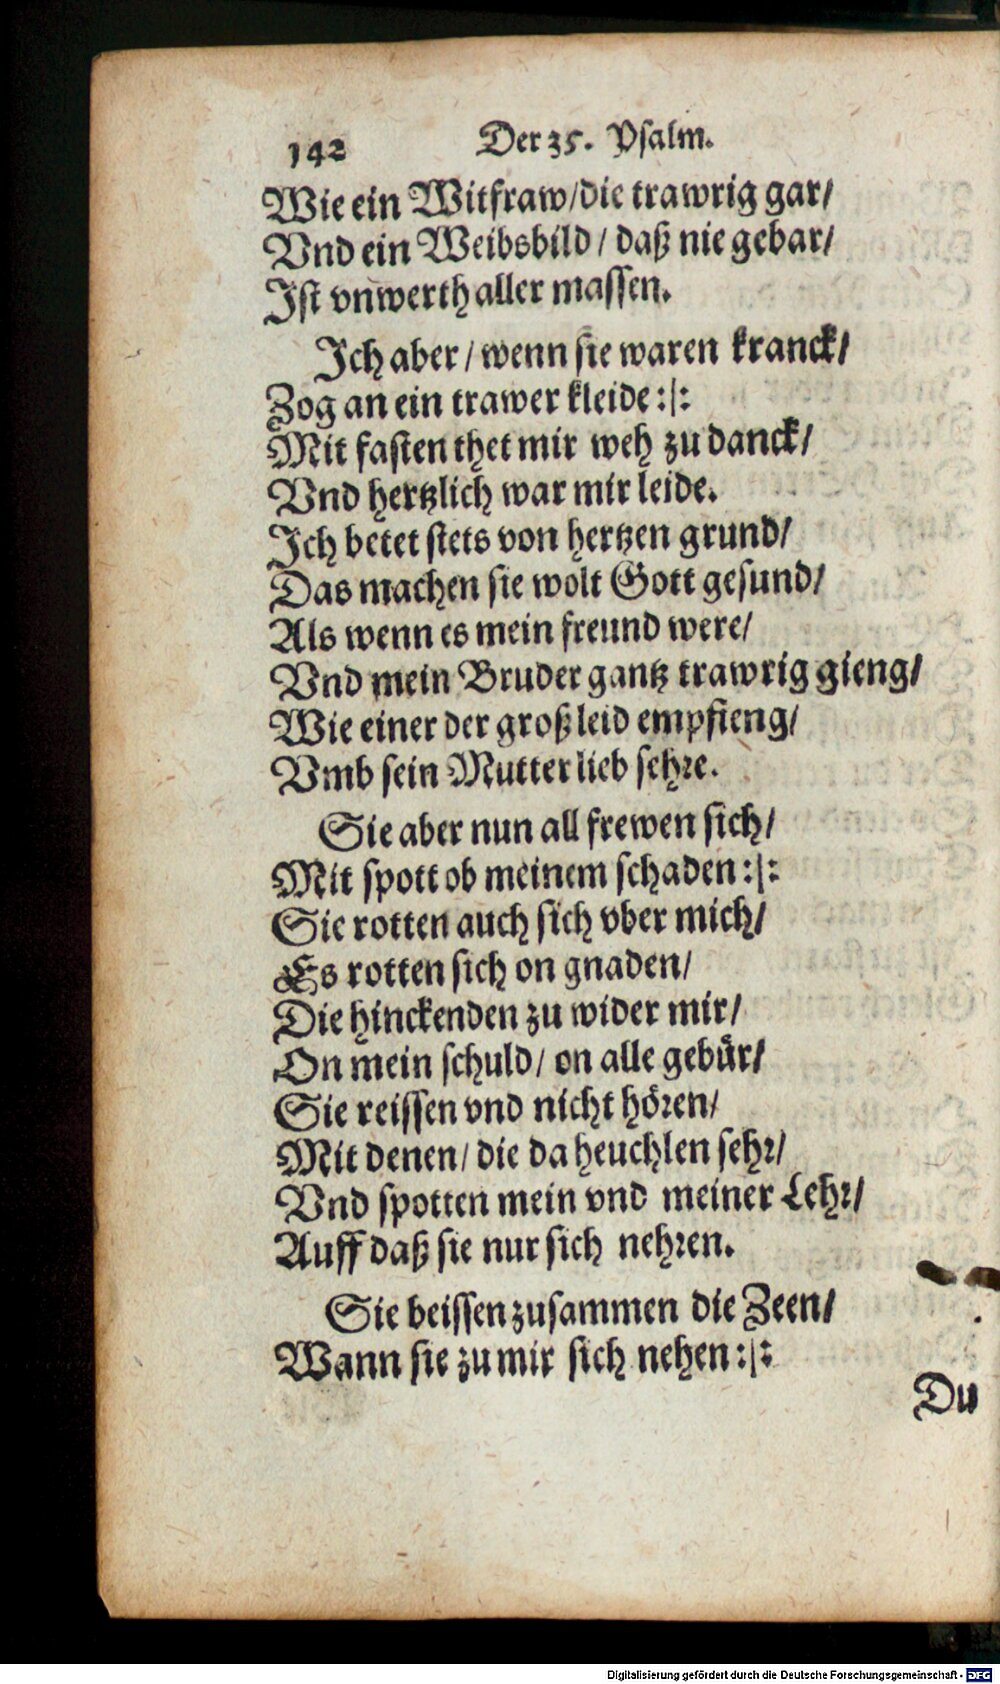 142 Der 35. Psalm.
Wie ein Witfraw/die trawrig gar/
Vnd ein Weibsbild / daß nie gebar/
Ist vnwerth aller massen.
Ich aber / wenn sie waren kranck/
Zog an ein trawer kleide :|:
Mit fasten thet mir weh zu danck/
Vnd hertzlich war mir leide.
Ich betet stets von hertzen grund/
Das machen sie wolt Gott gesund/
Als wenn es mein freund were/
Vnd mein Bruder gantz trawrig gieng/
Wie einer der groß leid empfieng/
Vmb sein Mutter lieb sehre.
Sie aber nun all frewen sich/
Mit spott ob meinem schaden :|:
Sie rotten auch sich vber mich/
Es rotten sich on gnaden/
Die hinckenden zu wider mir/
On mein schuld/ on alle gebür/
Sie reissen vnd nicht hören/
Mit denen/ die da heuchlen sehr/
Vnd spotten mein vnd meiner Lehr/
Auff daß sie nur sich nehren.
Sie beissen zusammen die Zeen/
Wann sie zu mir sich nehen :|:
Du
Digitalisierung gefördert durch die Deutsche Forschungsgemeinschaft - DFG